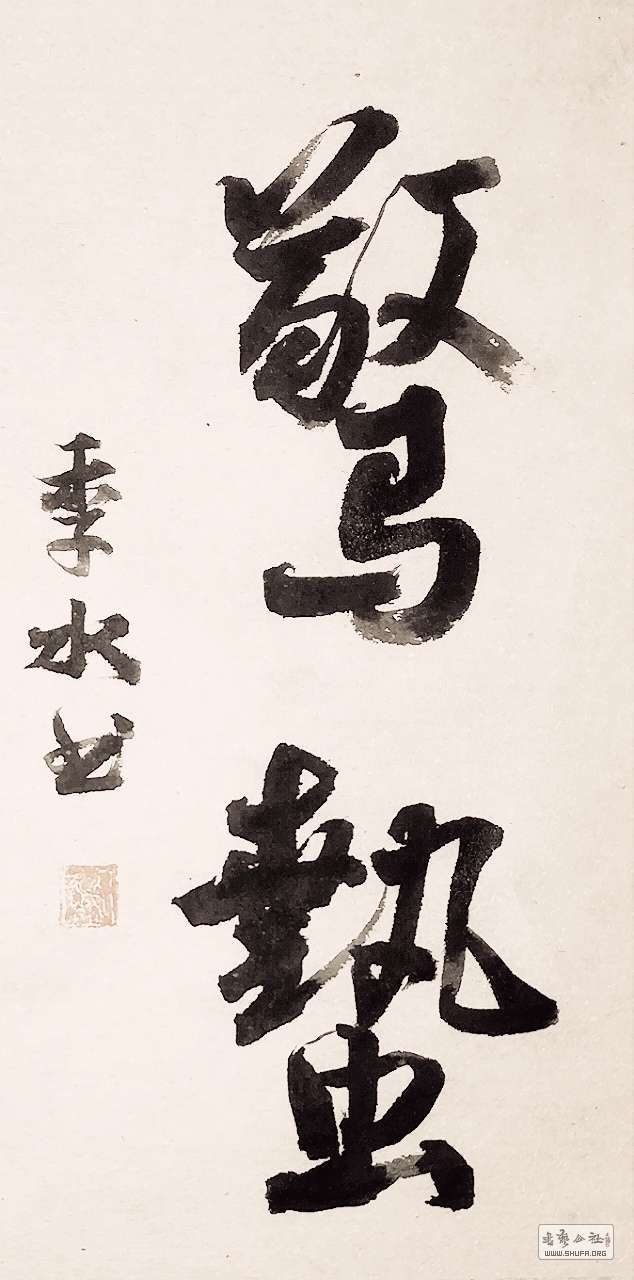 驚蟄
季水书
书艺公社
WWW.SHUFA.ORG